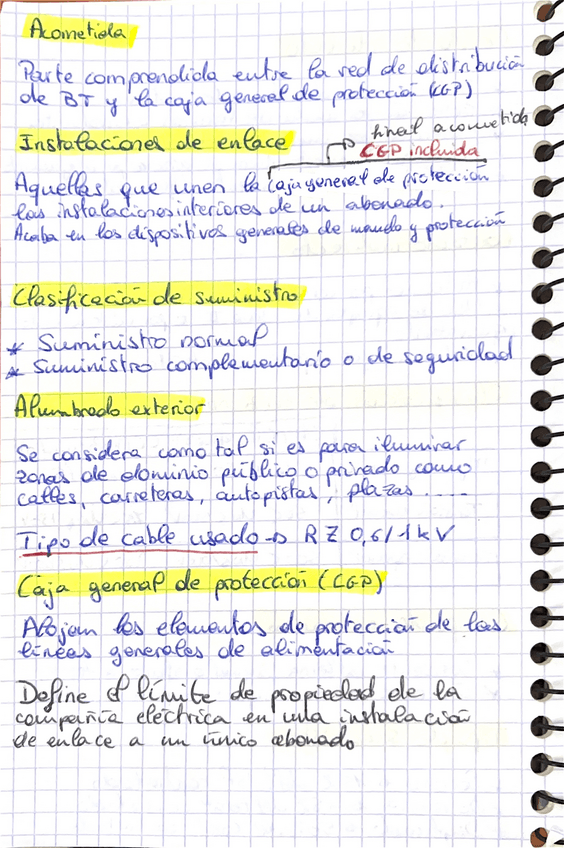 Acometida
Parte comprendida entre la red de distribución
de BT y la caja general de protección (CGP)
Instalaciones de enlace
final acometida
CGP incluida
Aquellas que unen la caja general de protección
las instalaciones interiores de un abonado.
Acaba en los dispositivos generales de mando y protección
Clasificación de suministro
* Suministro normal
* Suministro complementario o de seguridad
Alumbrado exterior
Se considera como tal si es para iluminar
zonas de dominio público o privado como
calles, carreteras, autopistas, plazas.....
Tipo de cable usado → RZ 0,6/1kV
Caja general de protección (CGP)
Alojan los elementos de protección de las
líneas generales de alimentación
Define el límite de propiedad de la
compañía eléctrica en una instalación
de enlace a un único abonado